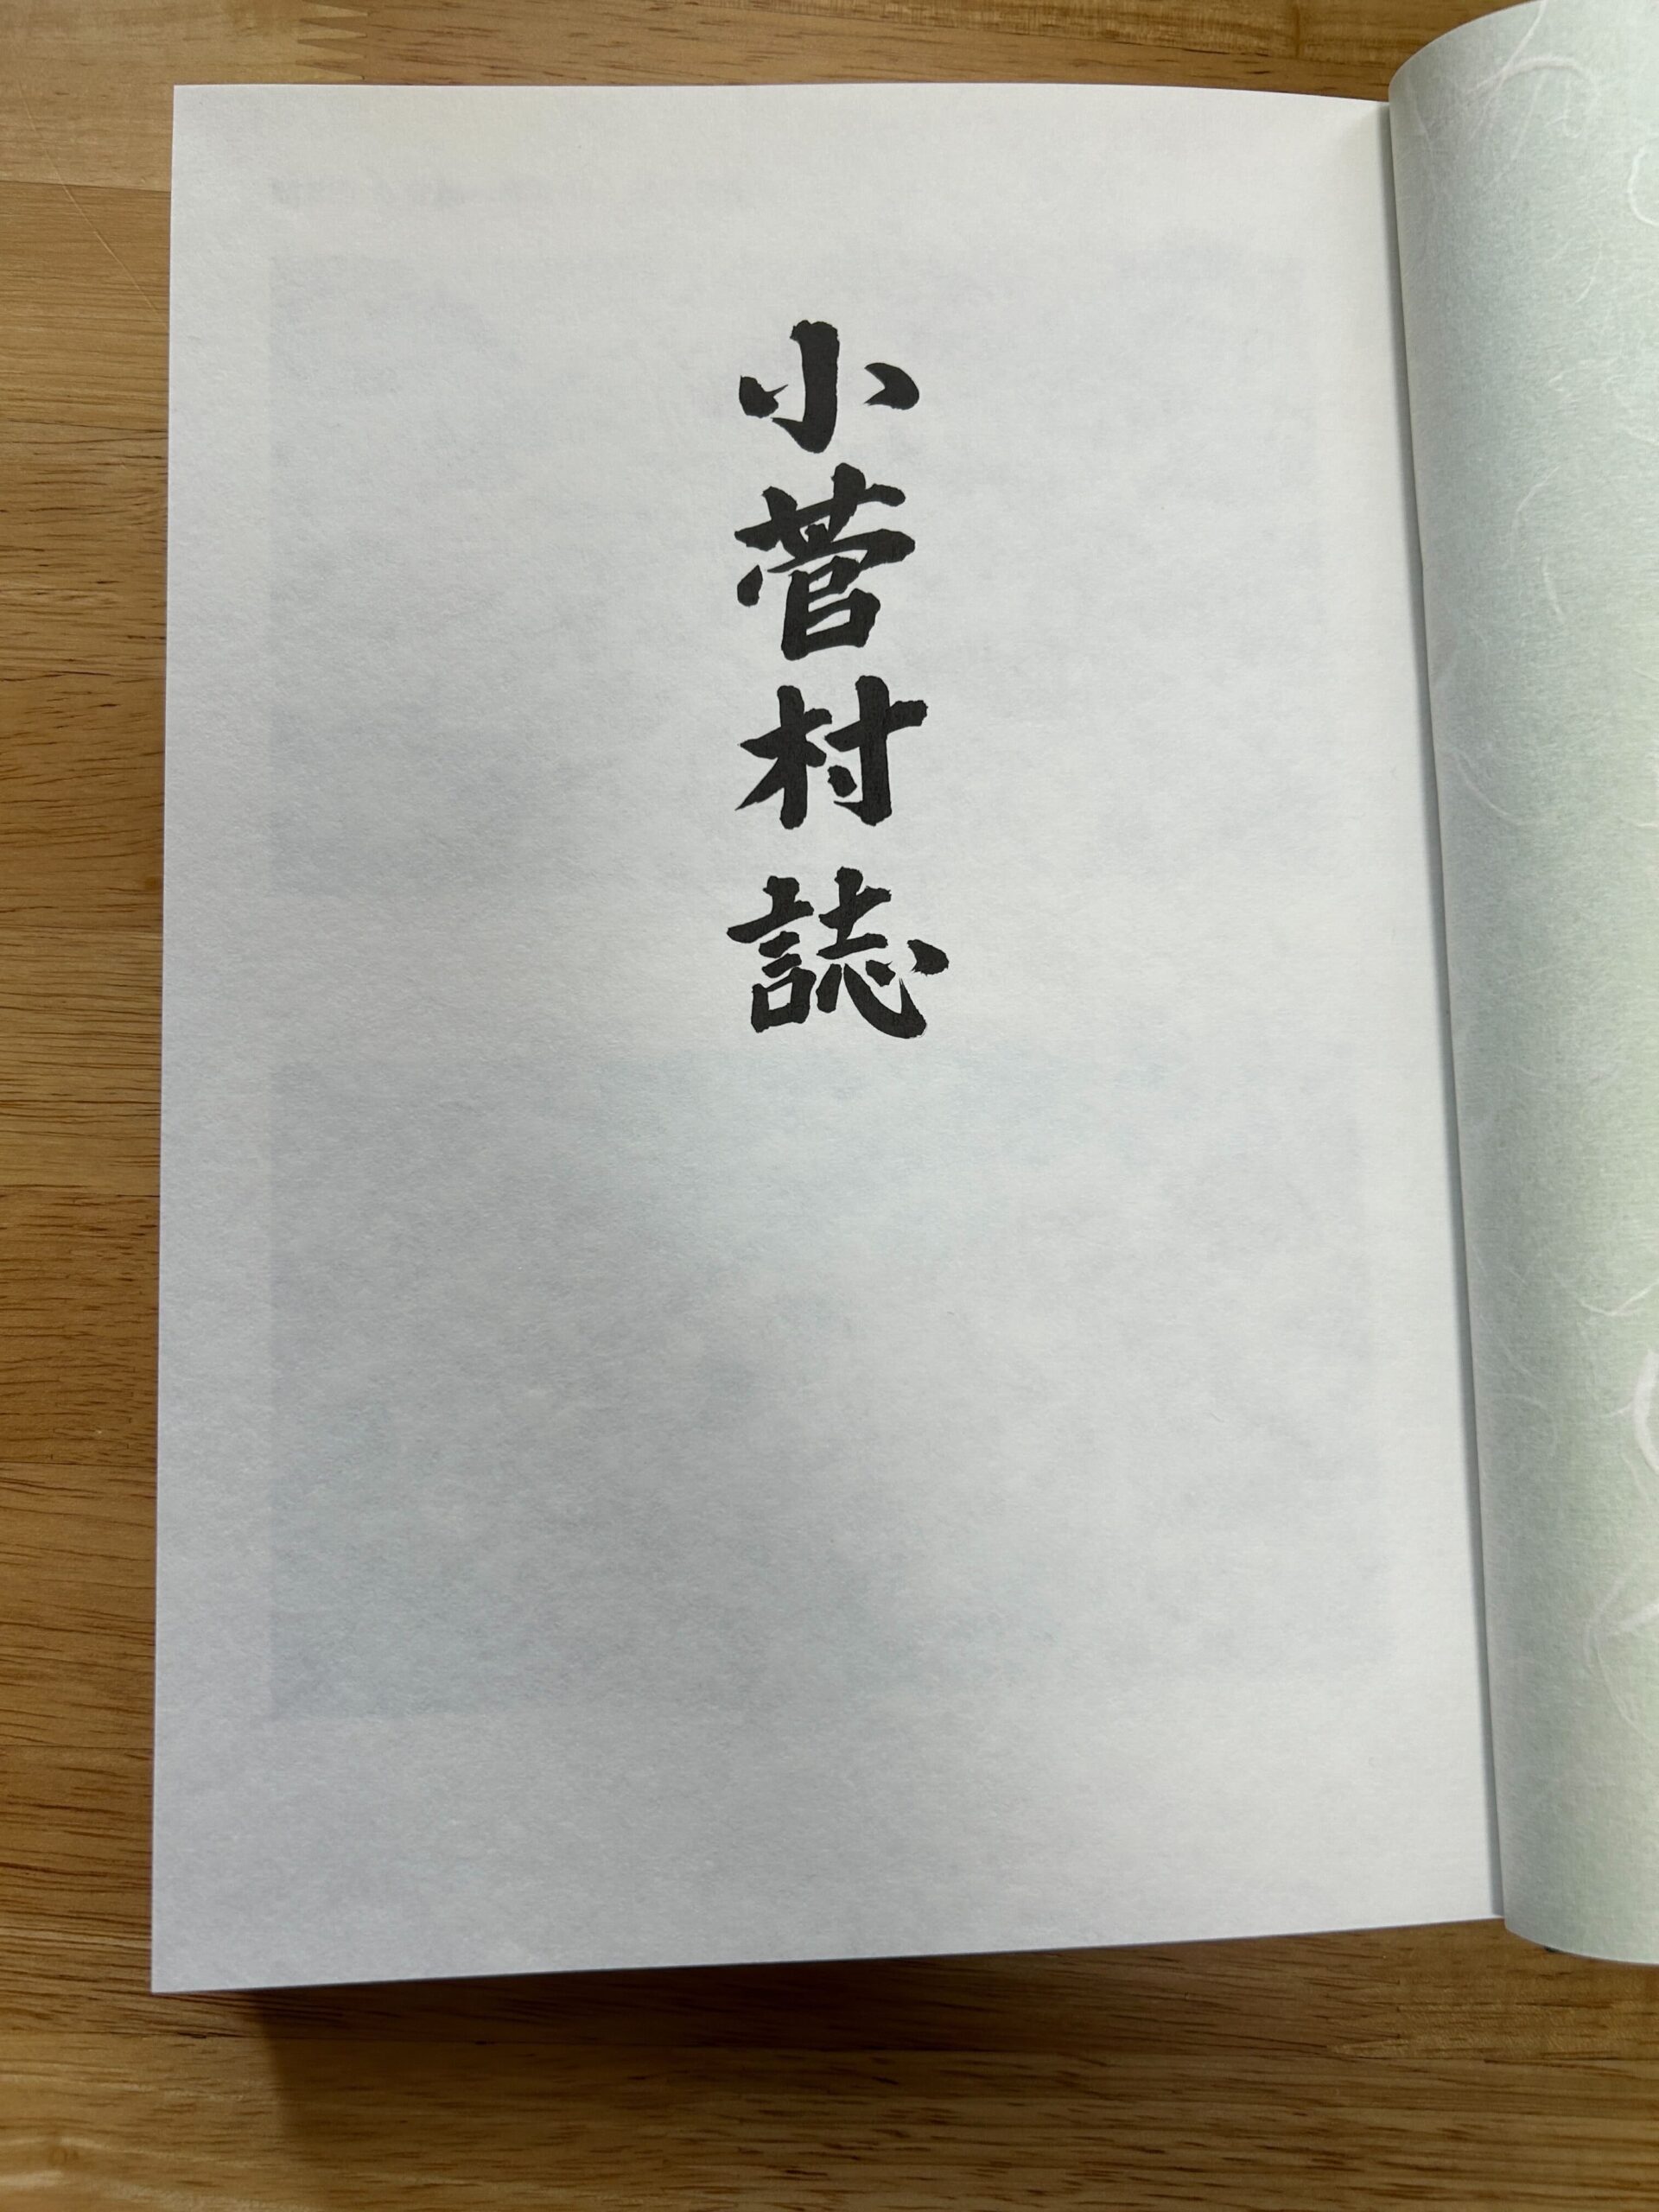 小菅村誌